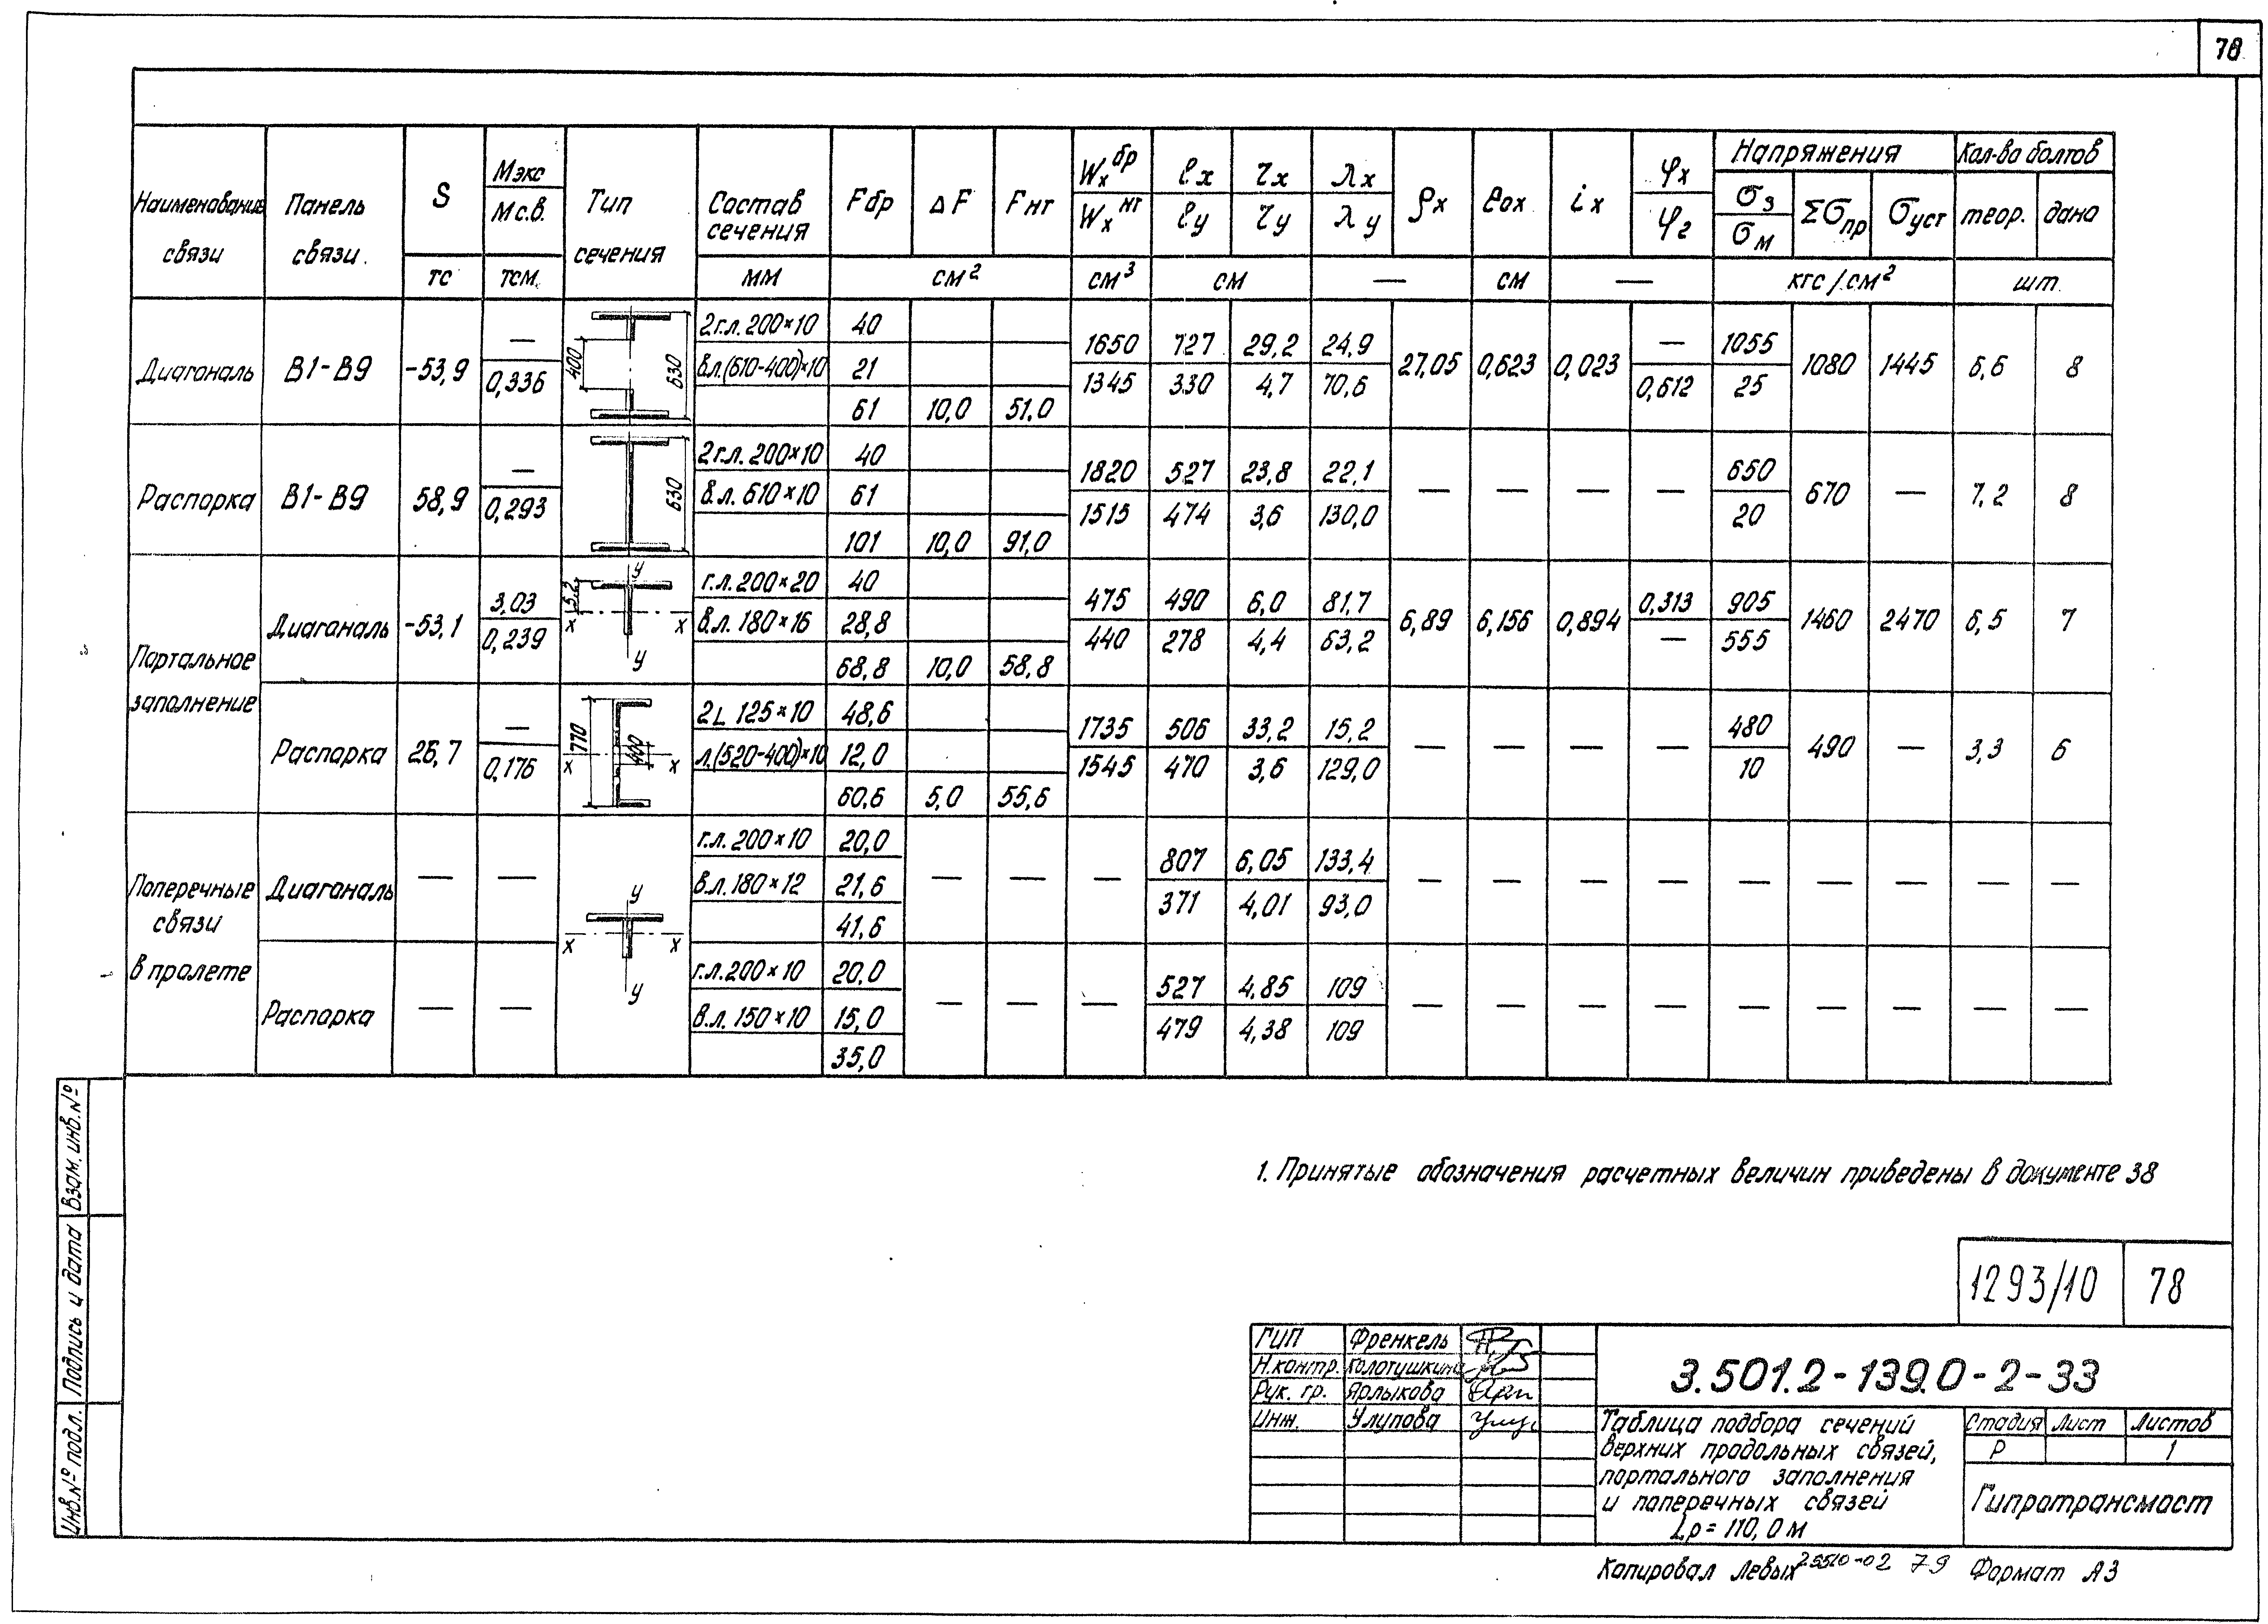 78
Наименование связи | Панель связи | S | Мэкс / Мс.в. | Тип сечения | Состав сечения | Fбр | ΔF | Fнт | Wxбр / Wxнт | ℓx / ℓy | ꚍx / ꚍy | λx / λy | ρx | eox | ix | φx / φ2 | Напряжения | Кол-во болтов
σз / σм | Σσпр | σуст | теор. | дано
тс | тсм | мм | см² | см³ | см | — | см | — | кгс/см² | шт.
Диагональ | В1-В9 | -53,9 | — / 0,336 | 400 | 630 | 2г.л. 200×10 | 40 | 1650 / 1345 | 727 / 330 | 29,2 / 4,7 | 24,9 / 70,6 | 27,05 | 0,623 | 0,023 | — / 0,612 | 1055 / 25 | 1080 | 1445 | 6,6 | 8
в.л.(610-400)×10 | 21
61 | 10,0 | 51,0
Распорка | В1-В9 | 58,9 | — / 0,293 | 630 | 2г.л. 200×10 | 40 | 1820 / 1515 | 527 / 474 | 23,8 / 3,6 | 22,1 / 130,0 | — | — | — | — | 650 / 20 | 670 | — | 7,2 | 8
в.л. 610×10 | 61
101 | 10,0 | 91,0
Портальное заполнение | Диагональ | -53,1 | 3,03 / 0,239 | y | 5,2 | x | x | y | г.л. 200×20 | 40 | 475 / 440 | 490 / 278 | 6,0 / 4,4 | 81,7 / 63,2 | 6,89 | 6,156 | 0,894 | 0,313 / — | 905 / 555 | 1460 | 2470 | 6,5 | 7
в.л. 180×16 | 28,8
68,8 | 10,0 | 58,8
Распорка | 26,7 | — / 0,176 | 770 | 400 | x | x | 2L 125×10 | 48,6 | 1735 / 1545 | 506 / 470 | 33,2 / 3,6 | 15,2 / 129,0 | — | — | — | — | 480 / 10 | 490 | — | 3,3 | 6
л.(520-400)×10 | 12,0
60,6 | 5,0 | 55,6
Поперечные связи в пролете | Диагональ | — | — | y | x | x | y | г.л. 200×10 | 20,0 | — | — | — | 807 / 371 | 6,05 / 4,01 | 133,4 / 93,0 | — | — | — | — | — | — | — | — | —
в.л. 180×12 | 21,6
41,6
Распорка | — | — | г.л. 200×10 | 20,0 | — | — | — | 527 / 479 | 4,85 / 4,38 | 109 / 109 | — | — | — | — | — | — | — | — | —
в.л. 150×10 | 15,0
35,0
1. Принятые обозначения расчетных величин приведены в документе 38
1293/10 78
ГИП Френкель
Н.контр. Колотушкина
Рук. гр. Ярлыкова
Инж. Улупова
3.501.2-139.0-2-33
Таблица подбора сечений
верхних продольных связей,
портального заполнения
и поперечных связей
Lр = 110,0 м
Стадия Лист Листов
Р 1
Гипротрансмост
Копировал Левых 25510-02 79 Формат А3
Инв. № подл. Подпись и дата Взам. инв. №